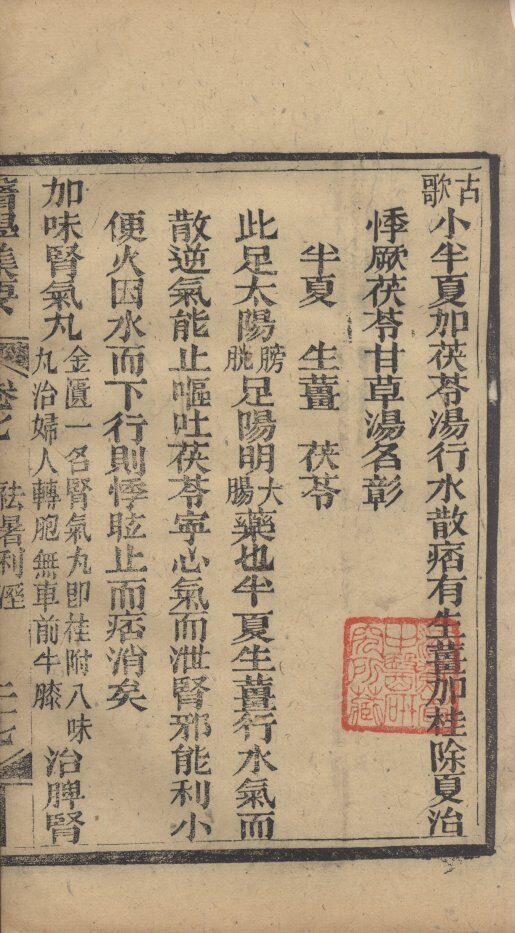 古歌小半夏加茯苓湯行水散痞有生薑加桂除夏治
悸厥茯苓甘草湯名彰
半夏　生薑　茯苓
此足太陽膀胱足陽明大腸藥也半夏生薑行水氣而
散逆氣能止嘔吐茯苓寧心氣而泄腎邪能利小
便火因水而下行則悸眩止而痞消矣
加味腎氣丸金匱一名腎氣丸即桂附八味丸治婦人轉胞無車前牛膝治脾腎
卷七　祛暑利溼